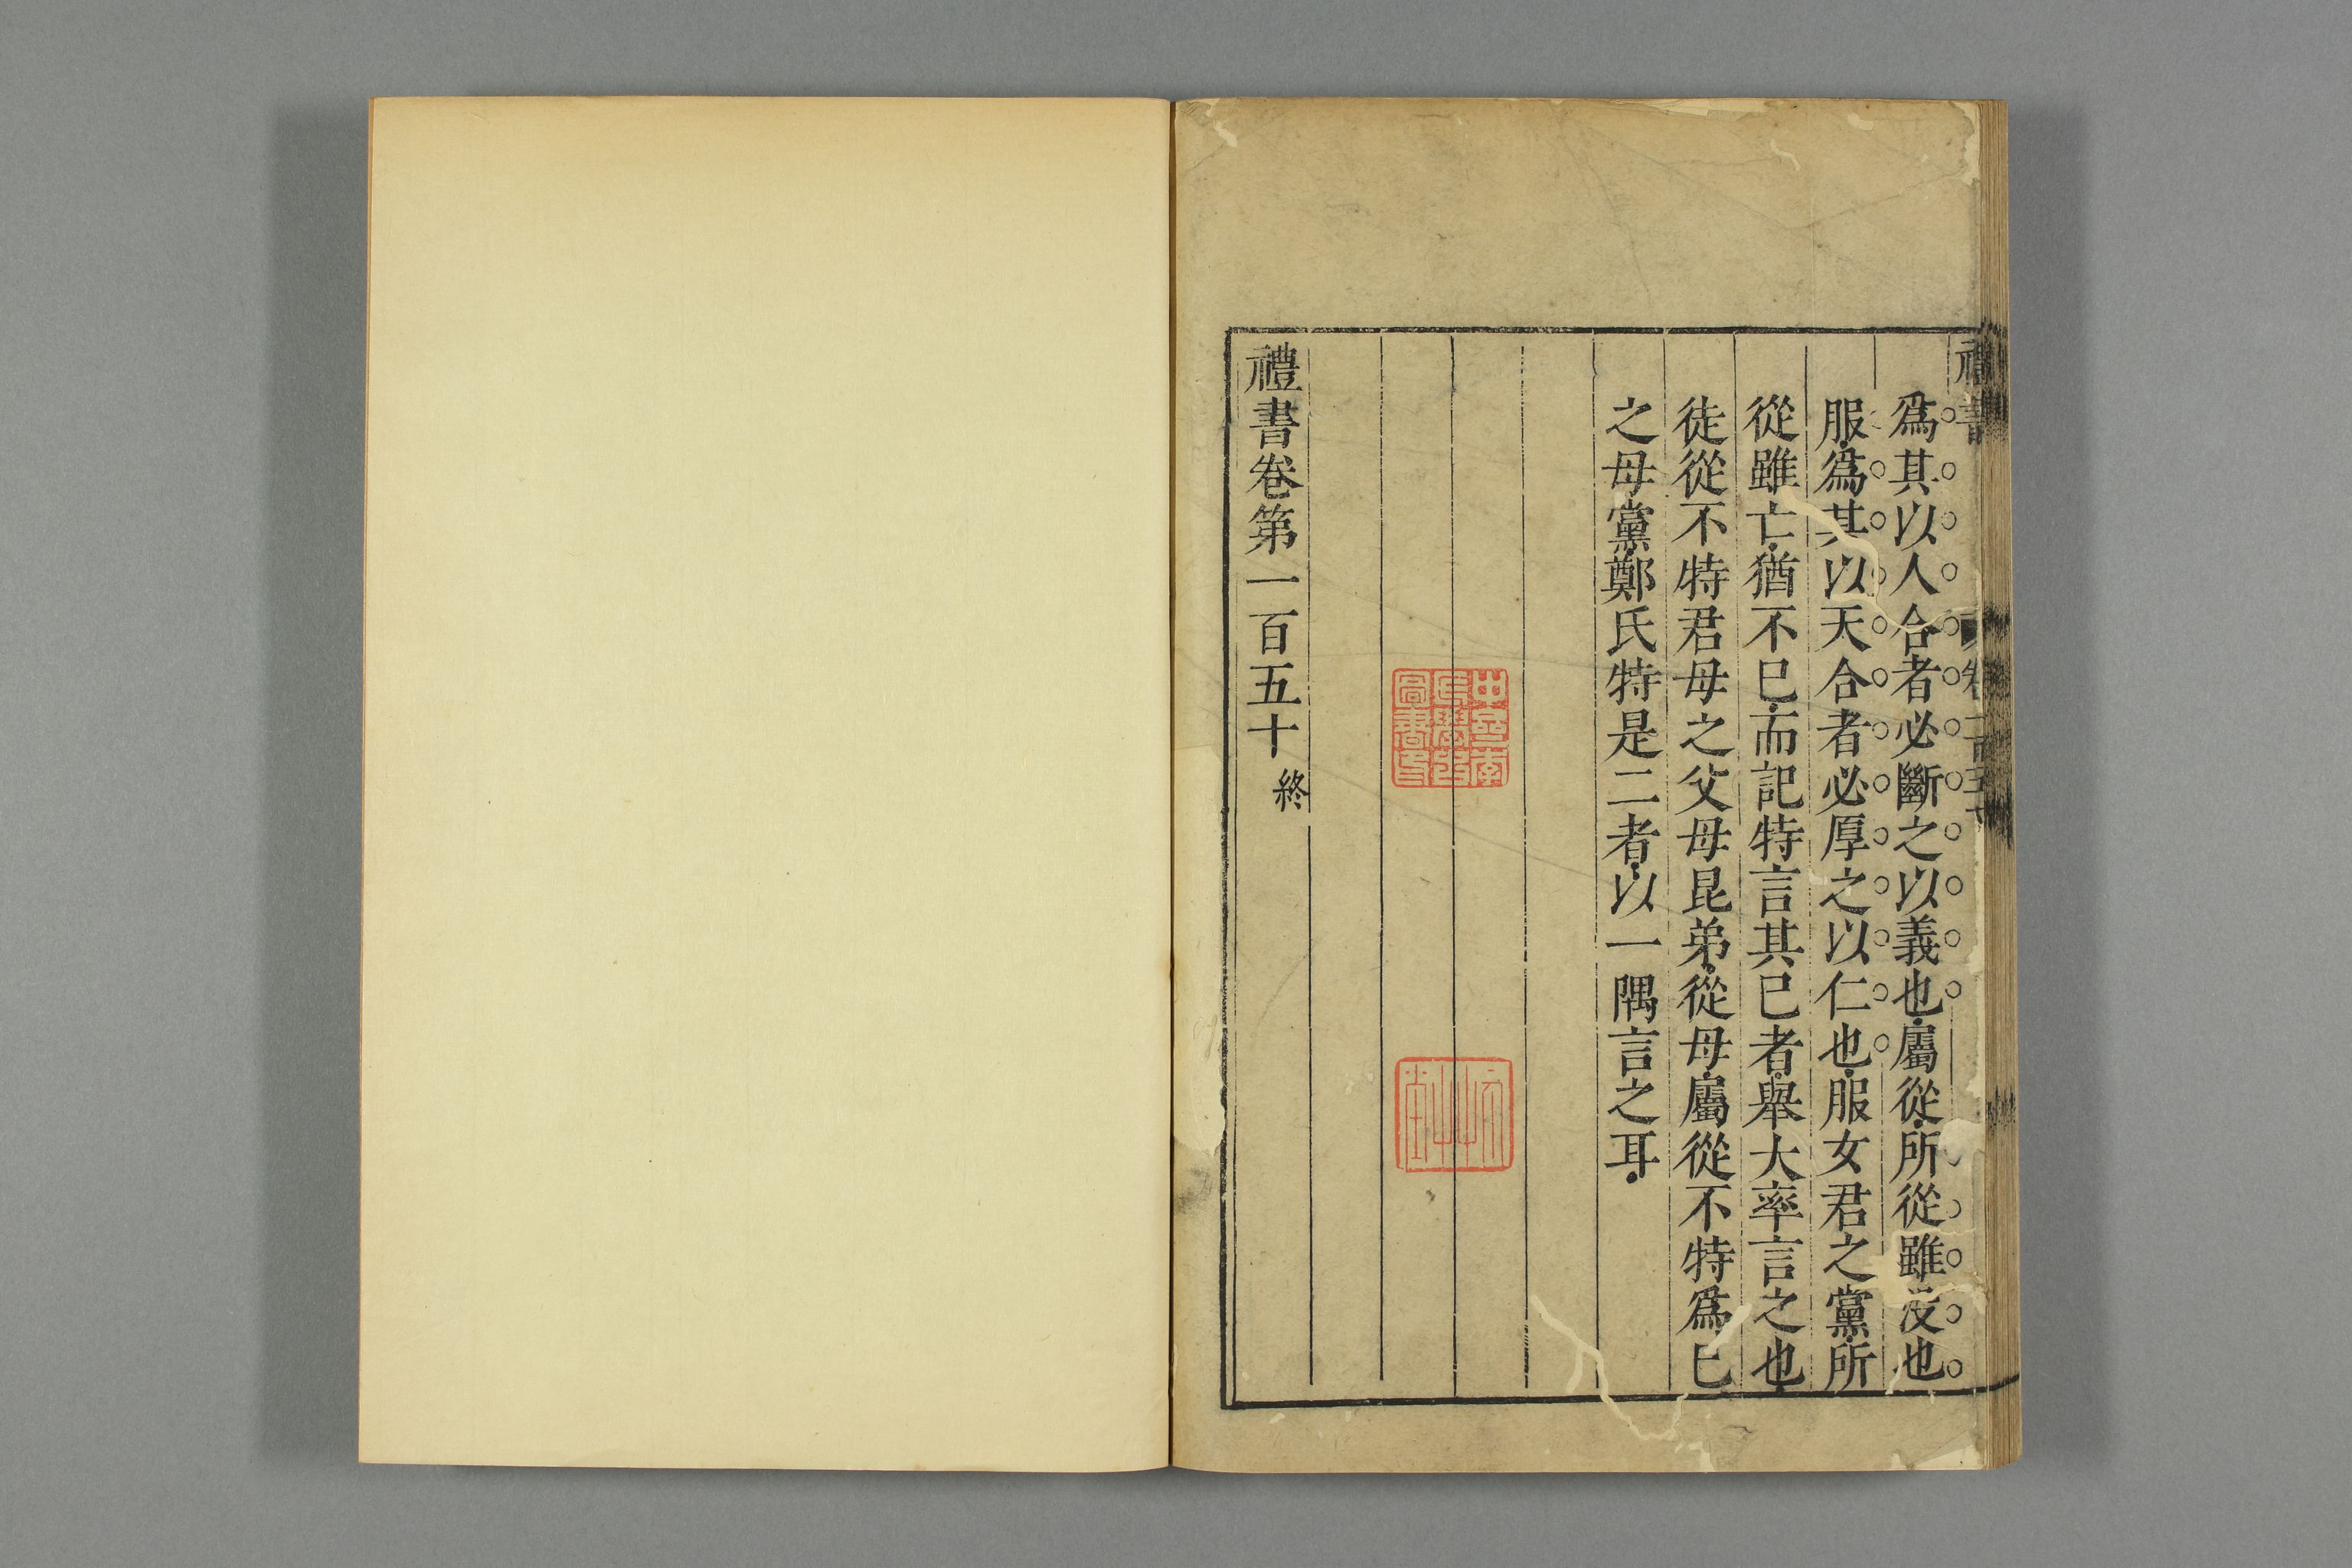 禮書　卷一百五十
爲其以人合者必斷之以義也屬從所從雖沒也
服爲其以天合者必厚之以仁也服女君之黨所
從雖亡猶不巳而記特言其巳者舉大率言之也
徒從不特君母之父母昆弟從母屬從不特爲巳
之母黨鄭氏特是二者以一隅言之耳
禮書卷第一百五十終